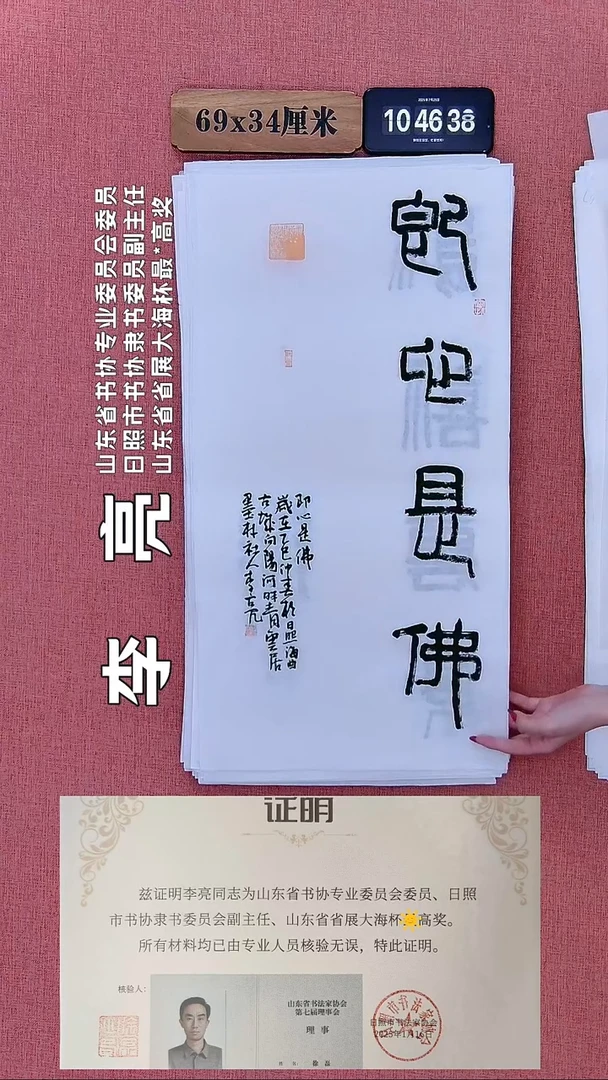 69x34厘米
10 46 38
山东省书协专业委员会委员
日照市书协隶书委员副主任
山东省省展大海杯最*高奖
李亮
即心是佛
即心是佛
岁在乙巳仲春於日照海曲
古城向阳河畔青云居
墨林社人李亮
证明
兹证明李亮同志为山东省书协专业委员会委员、日照
市书协隶书委员会副主任、山东省省展大海杯高奖。
所有材料均已由专业人员核验无误，特此证明。
核验人：
山东省书法家协会
第七届理事会
理事
姓名 徐磊
日照市书法家协会
2025年1月16日